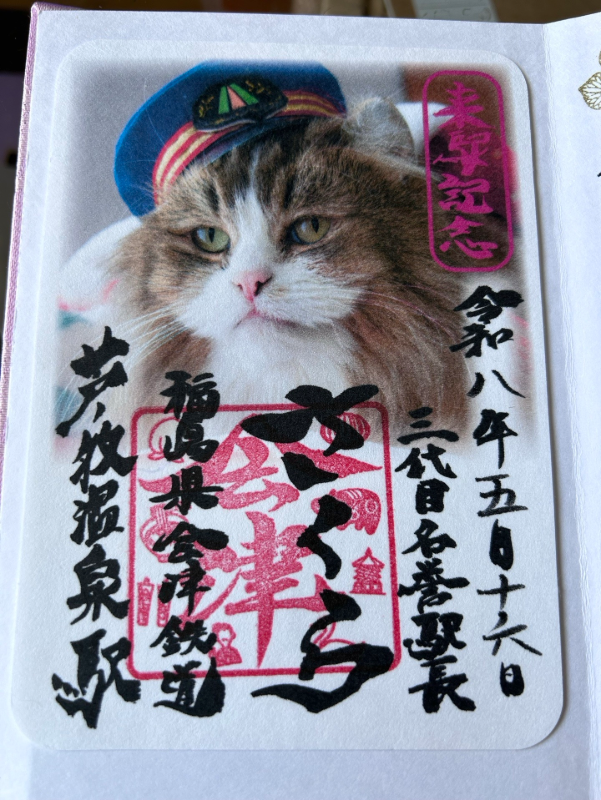 来駅記念
令和八年五月十六日
三代目名誉駅長
さくら
会津
福島県会津鉄道
芦ノ牧温泉駅